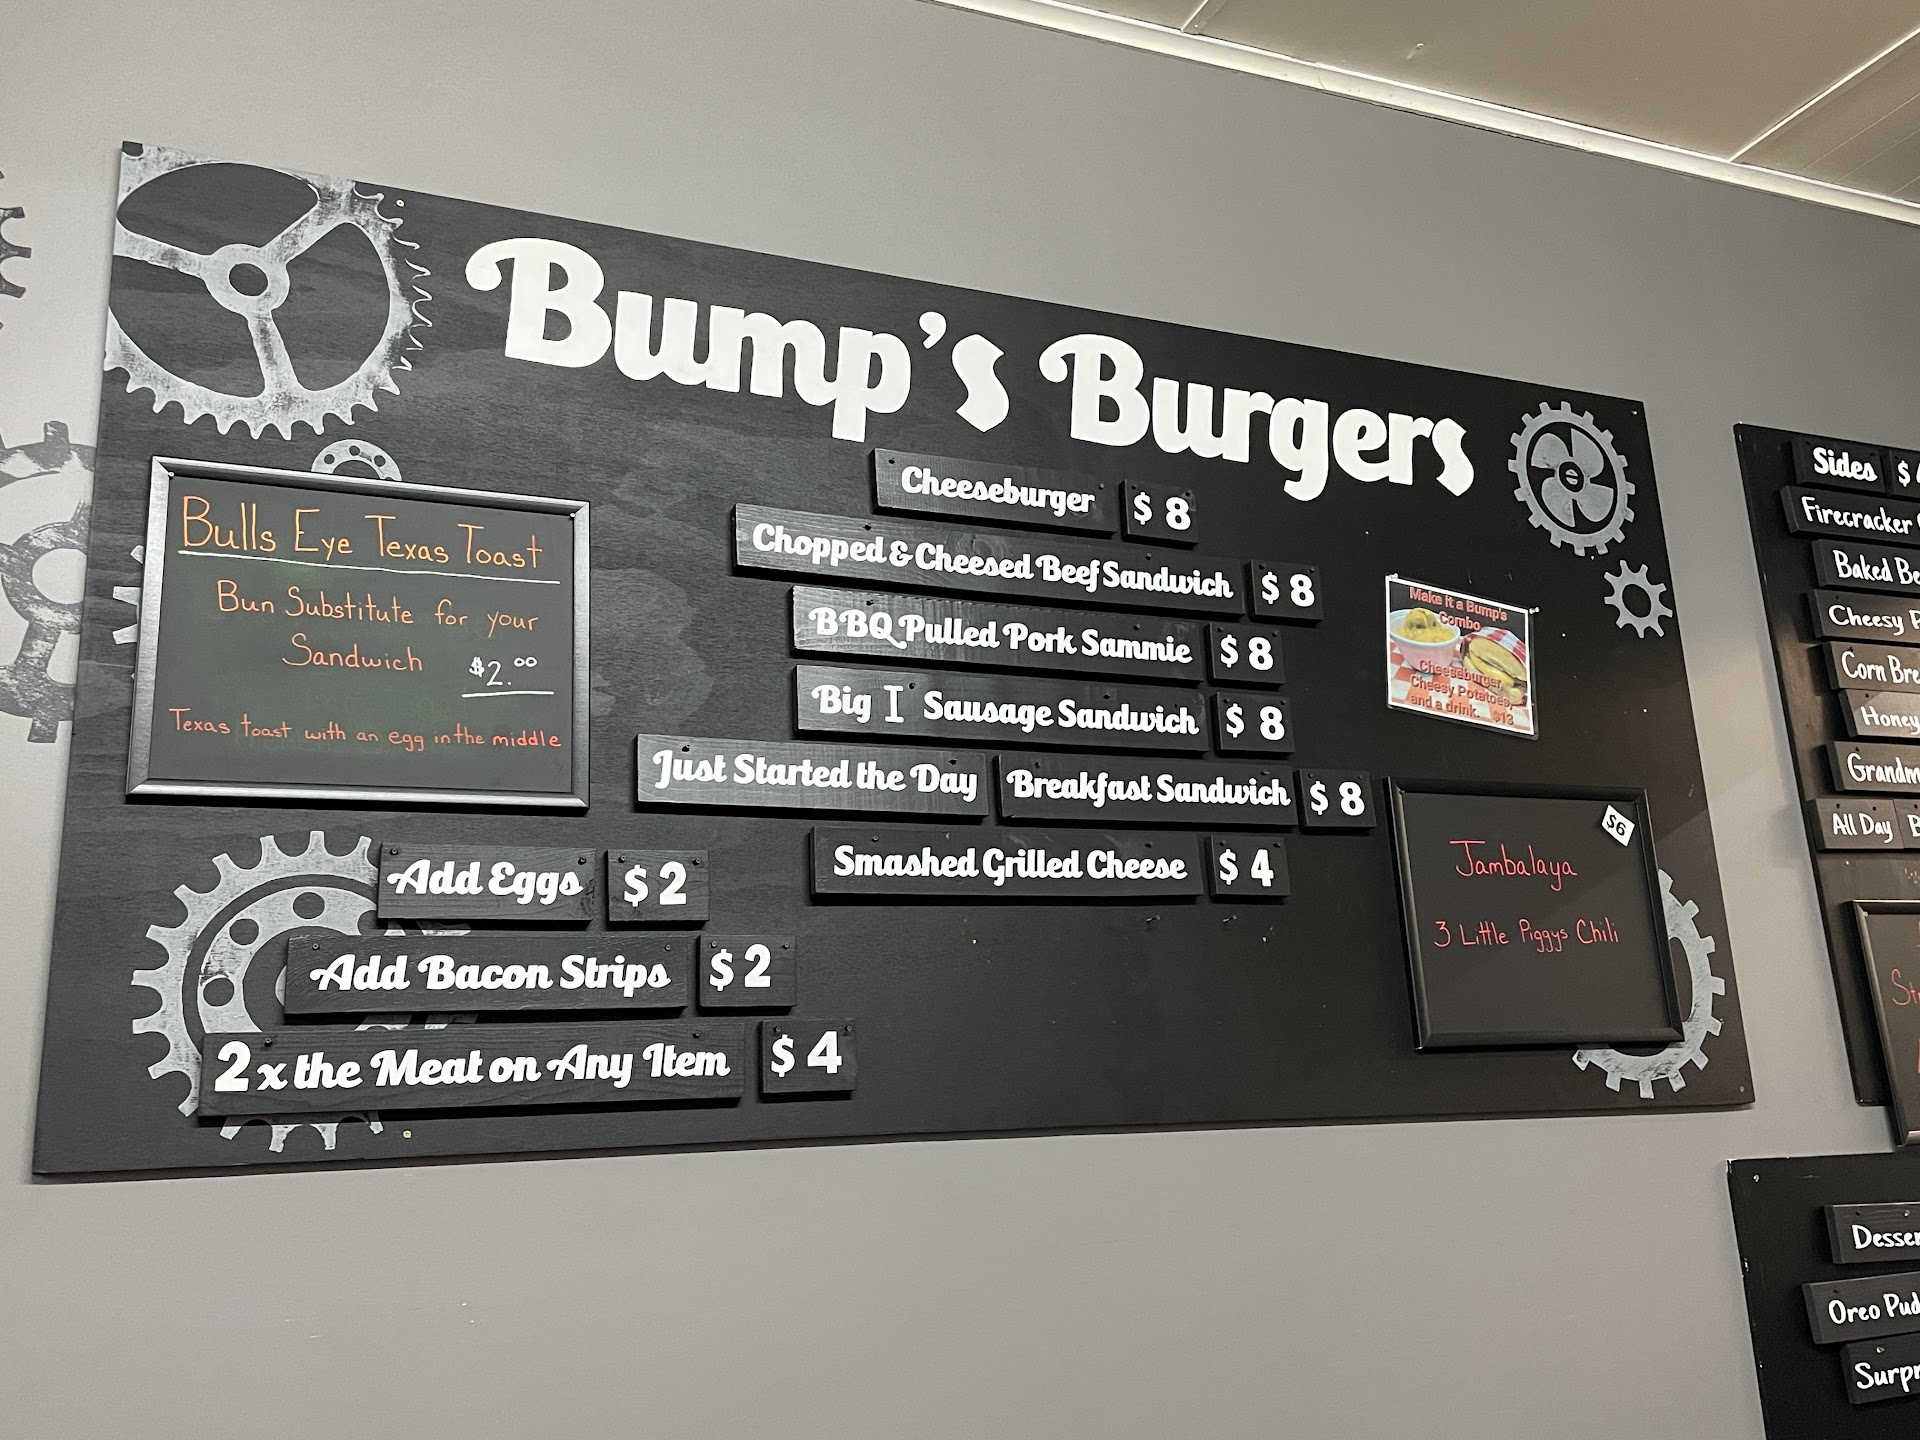 Bump's Burgers
Bulls Eye Texas Toast
Bun Substitute for your
Sandwich $2.00
Texas toast with an egg in the middle
Cheeseburger $ 8
Chopped & Cheesed Beef Sandwich $ 8
BBQ Pulled Pork Sammie $ 8
Big I Sausage Sandwich $ 8
Just Started the Day Breakfast Sandwich $ 8
Smashed Grilled Cheese $ 4
Add Eggs $ 2
Add Bacon Strips $ 2
2x the Meat on Any Item $ 4
Make it a Bump's
Combo
Cheeseburger,
Cheesy Potatoes,
and a drink. $13
$6
Jambalaya
3 Little Piggys Chili
Sides $
Firecracker
Baked
Cheesy
Corn
Honey
All Day
Oreo